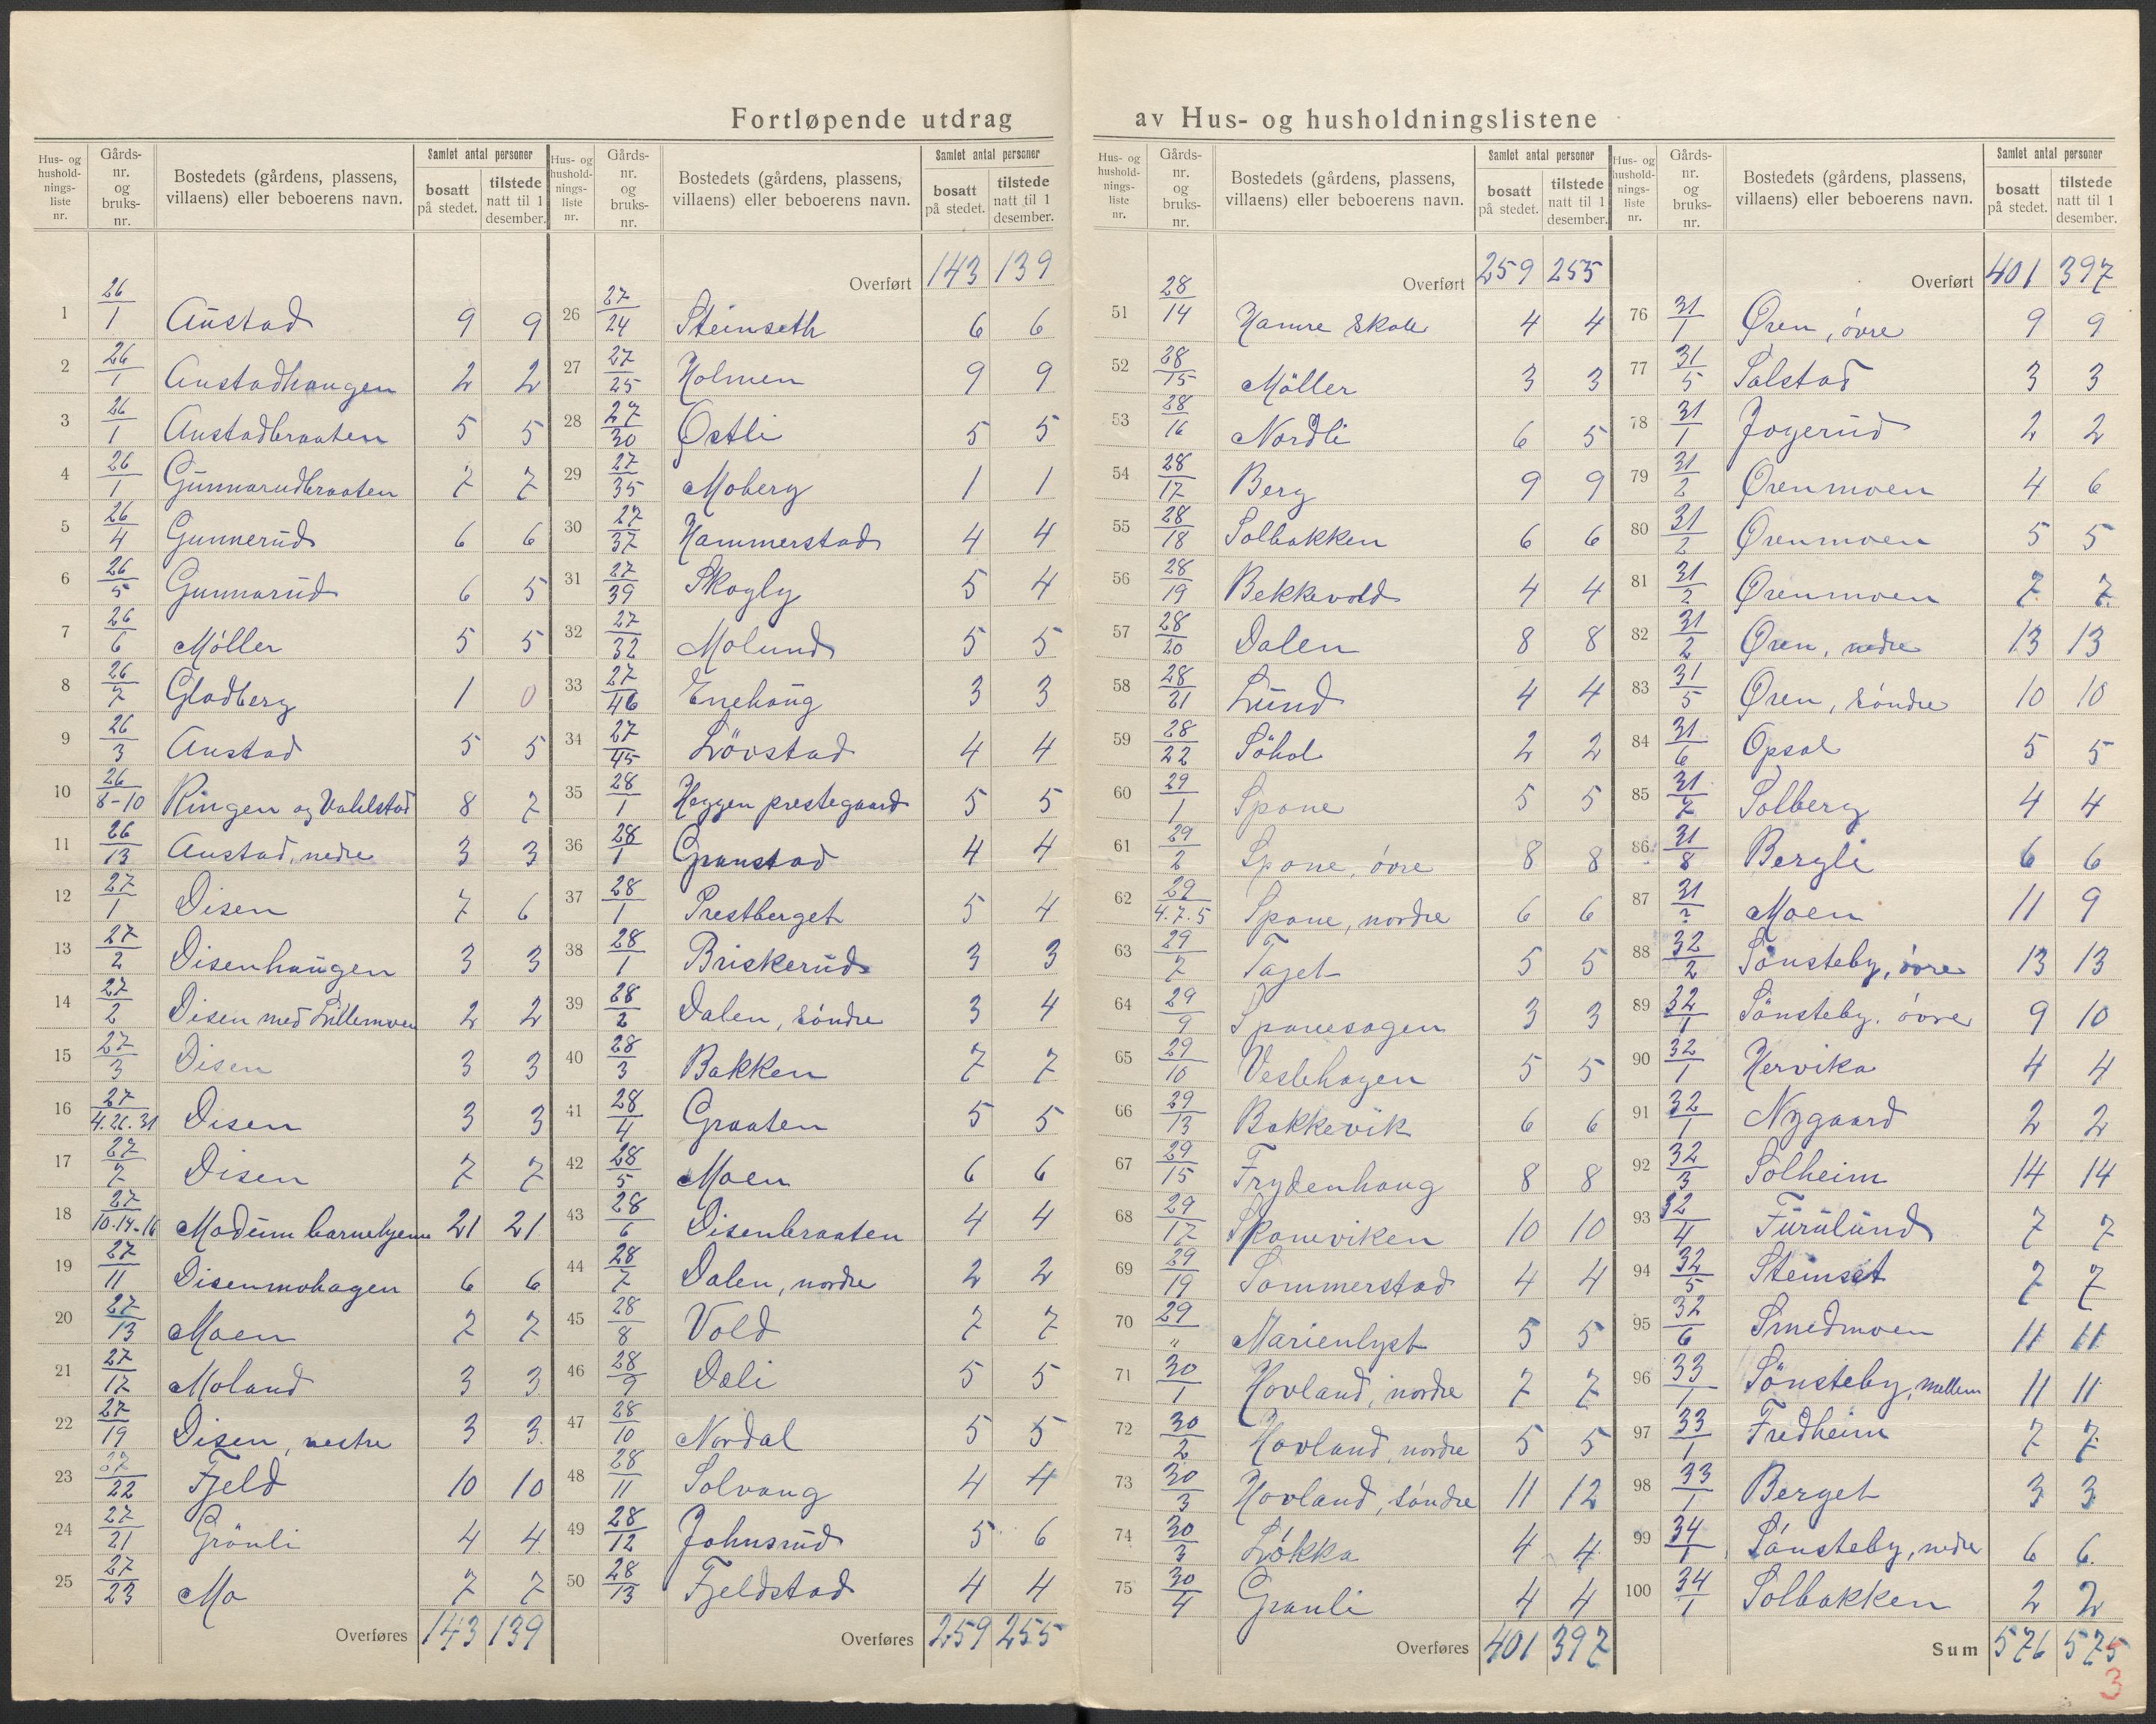 Fortløpende utdrag av Hus- og husholdningslistene
Hus- og husholdningsliste nr. | Gårdsnr. og bruksnr. | Bostedets (gårdens, plassens, villaens) eller beboerens navn. | Samlet antal personer bosatt på stedet. | tilstede natt til 1 desember.
1 26/1 Austad 9 9
2 26/1 Austadhaugen 2 2
3 26/1 Austadbraaten 5 5
4 26/1 Gunnarudbraaten 7 7
5 26/4 Gunnerud 6 6
6 26/5 Gunnarud 6 5
7 26/6 Møller 5 5
8 26/7 Gladberg 1 0
9 26/3 Austad 5 5
10 26/8-10 Ringen og Vahlstad 8 7
11 26/13 Austad, nedre 3 3
12 27/1 Disen 7 6
13 27/2 Disenhaugen 3 3
14 27/2 Disen med Lillemoen 2 2
15 27/3 Disen 3 3
16 27/4.26.31 Disen 3 3
17 27/7 Disen 7 7
18 27/10.14-16 Modum barnehjem 21 21
19 27/11 Disenmohagen 6 6
20 27/13 Moen 7 7
21 27/17 Moland 3 3
22 27/19 Disen, vestre 3 3
23 27/22 Fjeld 10 10
24 27/21 Grönli 4 4
25 27/23 Mo 7 7
Overføres 143 139
Hus- og husholdningsliste nr. | Gårdsnr. og bruksnr. | Bostedets (gårdens, plassens, villaens) eller beboerens navn. | Samlet antal personer bosatt på stedet. | tilstede natt til 1 desember.
Overført 143 139
26 27/24 Steinseth 6 6
27 27/25 Holmen 9 9
28 27/30 Østli 5 5
29 27/35 Moberg 1 1
30 27/37 Hammerstad 4 4
31 27/39 Skogly 5 4
32 27/32 Molund 5 5
33 27/46 Enehaug 3 3
34 27/45 Lövstad 4 4
35 28/1 Heggen prestegaard 5 5
36 28/1 Granstad 4 4
37 28/1 Prestberget 5 4
38 28/1 Briskerud 3 3
39 28/2 Dalen, søndre 3 4
40 28/3 Bakken 7 7
41 28/4 Graaten 5 5
42 28/5 Moen 6 6
43 28/6 Disenbraaten 4 4
44 28/7 Dalen, nordre 2 2
45 28/8 Vold 7 7
46 28/9 Dali 5 5
47 28/10 Nordal 5 5
48 28/11 Solvang 4 4
49 28/12 Johnsrud 5 6
50 28/13 Fjeldstad 4 4
Overføres 259 255
Hus- og husholdningsliste nr. | Gårdsnr. og bruksnr. | Bostedets (gårdens, plassens, villaens) eller beboerens navn. | Samlet antal personer bosatt på stedet. | tilstede natt til 1 desember.
Overført 259 255
51 28/14 Hamre skole 4 4
52 28/15 Möller 3 3
53 28/16 Nordli 6 5
54 28/17 Berg 9 9
55 28/18 Solbakken 6 6
56 28/19 Bekkevold 4 4
57 28/20 Dalen 8 8
58 28/21 Lund 4 4
59 28/22 Söhol 2 2
60 29/1 Spone 5 5
61 29/2 Spone, øvre 8 8
62 29/4.7.5 Spone, nordre 6 6
63 29/7 Taget 5 5
64 29/9 Sponesagen 3 3
65 29/10 Veslehagen 5 5
66 29/13 Bakkevik 6 6
67 29/15 Frydenhaug 8 8
68 29/17 Skaneviken 10 10
69 29/19 Sommerstad 4 4
70 29/" Marienlyst 5 5
71 30/1 Hovland, nordre 7 7
72 30/2 Hovland, nordre 5 5
73 30/3 Hovland, søndre 11 12
74 30/3 Løkka 4 4
75 30/4 Granli 4 4
Overføres 401 397
Hus- og husholdningsliste nr. | Gårdsnr. og bruksnr. | Bostedets (gårdens, plassens, villaens) eller beboerens navn. | Samlet antal personer bosatt på stedet. | tilstede natt til 1 desember.
Overført 401 397
76 31/1 Øren, øvre 9 9
77 31/5 Solstad 3 3
78 31/1 Jogerud 2 2
79 31/2 Ørenmoen 4 6
80 31/2 Ørenmoen 5 5
81 31/2 Ørenmoen 7 7
82 31/2 Øren, nedre 13 13
83 31/5 Øren, søndre 10 10
84 31/6 Opsal 5 5
85 31/7 Solberg 4 4
86 31/8 Bergli 6 6
87 31/? Moen 11 9
88 32/2 Sønsteby, øvre 13 13
89 32/1 Sønsteby, øvre 9 10
90 32/1 Hervika 4 4
91 32/1 Nygaard 2 2
92 32/3 Solheim 14 14
93 32/4 Furulund 7 7
94 32/5 Steinset 7 7
95 32/6 Smedmoen 11 11
96 33/1 Sönsteby, mellem 11 11
97 33/1 Fredheim 7 7
98 33/1 Berget 3 3
99 34/1 Sønsteby, nedre 6 6
100 34/1 Solbakken 2 2
Sum 576 575
3